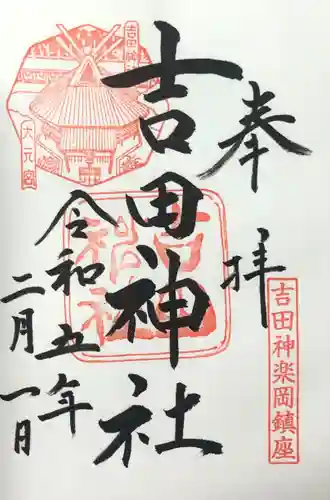 奉拝
吉田神楽岡鎮座
吉田神社
吉田神社
大元宮
令和五年
二月一日